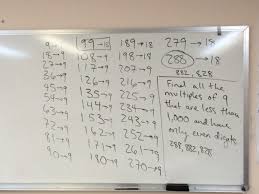 9→9
18→9
27→9
36→9
45→9
54→9
63→9
72→9
81→9
90→9
99→18
108→9
117→9
126→9
135→9
144→9
153→9
162→9
171→9
180→9
189→18
198→18
207→9
216→9
225→9
234→9
243→9
252→9
261→9
270→9
279→18
288→18
882, 828
Find all the
multiples of 9
that are less than
1,000 and have
only even digits
288, 882, 828